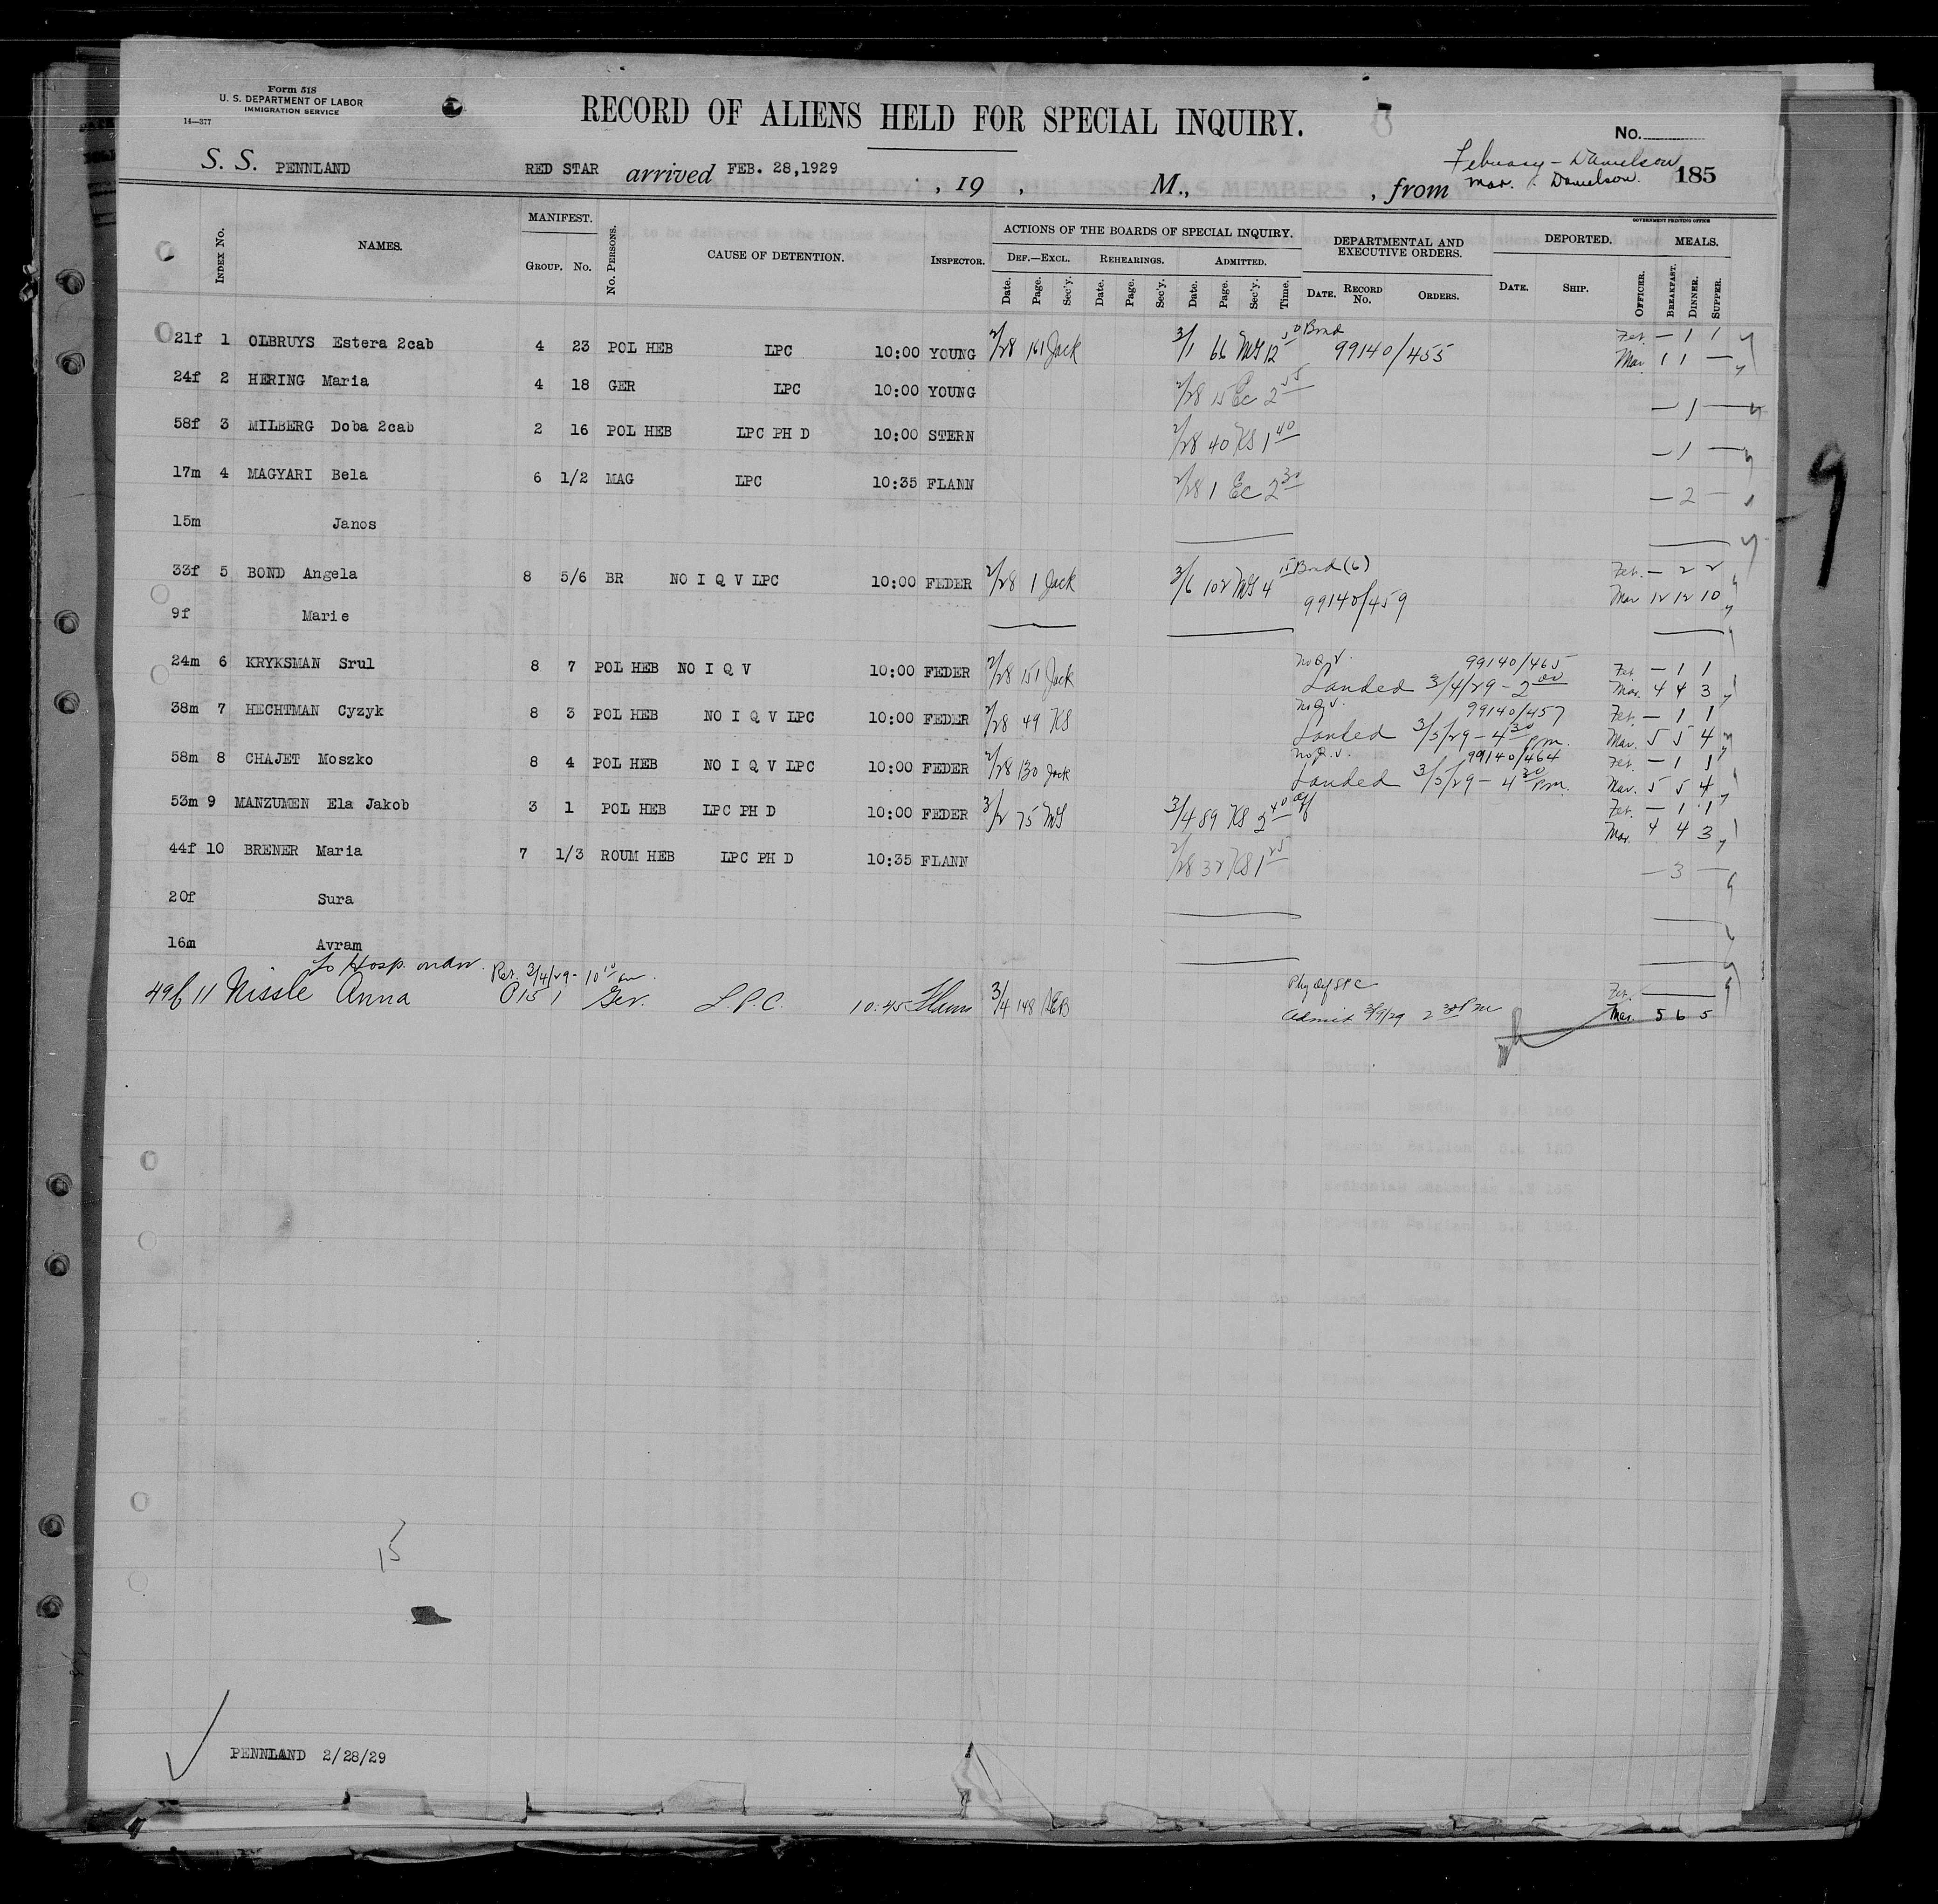 Form 518
U. S. DEPARTMENT OF LABOR
IMMIGRATION SERVICE
14—377
RECORD OF ALIENS HELD FOR SPECIAL INQUIRY.
No.
February - Danielson
S. S. PENNLAND RED STAR arrived FEB. 28,1929 , 19 , M., , from Mar. Danielson. 185
GOVERNMENT PRINTING OFFICE
INDEX No. NAMES. MANIFEST. GROUP. No. No. PERSONS. CAUSE OF DETENTION. INSPECTOR. ACTIONS OF THE BOARDS OF SPECIAL INQUIRY. DEPARTMENTAL AND EXECUTIVE ORDERS. DEPORTED. MEALS.
DEF.—EXCL. REHEARINGS. ADMITTED.
Date. Page. Sec'y. Date. Page. Sec'y. Date. Page. Sec'y. Time. DATE. RECORD No. ORDERS. DATE. SHIP. OFFICER. BREAKFAST. DINNER. SUPPER.
21f 1 OLBRUYS Estera 2cab 4 23 POL HEB LPC 10:00 YOUNG 2/28 161 Jack 3/1 66 MG 12 50 Bond 99140/455 Feb. — 1 1
Mar 1 1 —
24f 2 HERING Maria 4 18 GER LPC 10:00 YOUNG 2/28 15 Ec 2 55 — 1 —
58f 3 MILBERG Doba 2cab 2 16 POL HEB LPC PH D 10:00 STERN 2/28 40 KS 1 40 — 1 —
17m 4 MAGYARI Bela 6 1/2 MAG LPC 10:35 FLANN 2/28 1 Ec 2 30 — 2 —
15m Janos
33f 5 BOND Angela 8 5/6 BR NO I Q V LPC 10:00 FEDER 2/28 1 Jack 3/6 102 MG 4 15 Bond (6) Feb. — 2 2
99140/459 Mar 12 12 10
9f Marie
24m 6 KRYKSMAN Srul 8 7 POL HEB NO I Q V 10:00 FEDER 2/28 151 Jack No Q V. 99140/465 Feb — 1 1
Landed 3/4/29 - 2 00 Mar. 4 4 3
38m 7 HECHTMAN Cyzyk 8 3 POL HEB NO I Q V LPC 10:00 FEDER 2/28 49 KS No Q V. 99140/457 Feb. — 1 1
Landed 3/5/29 - 4 30 Pm. Mar. 5 5 4
58m 8 CHAJET Moszko 8 4 POL HEB NO I Q V LPC 10:00 FEDER 2/28 130 Jack No Q. V. 99140/464 Feb. — 1 1
Landed 3/5/29 - 4 30 Pm. Mar. 5 5 4
53m 9 MANZUMEN Ela Jakob 3 1 POL HEB LPC PH D 10:00 FEDER 3/2 75 MG 3/4 89 KS 2 40 Feb. — 1 1
Mar. 4 4 3
44f 10 BRENER Maria 7 1/3 ROUM HEB LPC PH D 10:35 FLANN 2/28 32 KS 1 25 — 3 —
20f Sura
16m Avram
To Hosp. Rec. 3/4/29 - 10 10 am.
49f 11 Nissle Anna 015 1 Ger. L.P.C. 10:45 Flann 3/4 148 Feb.
Admit 3/9/29 2 30 Pm Mar. 5 6 5
15
9
PENNLAND 2/28/29